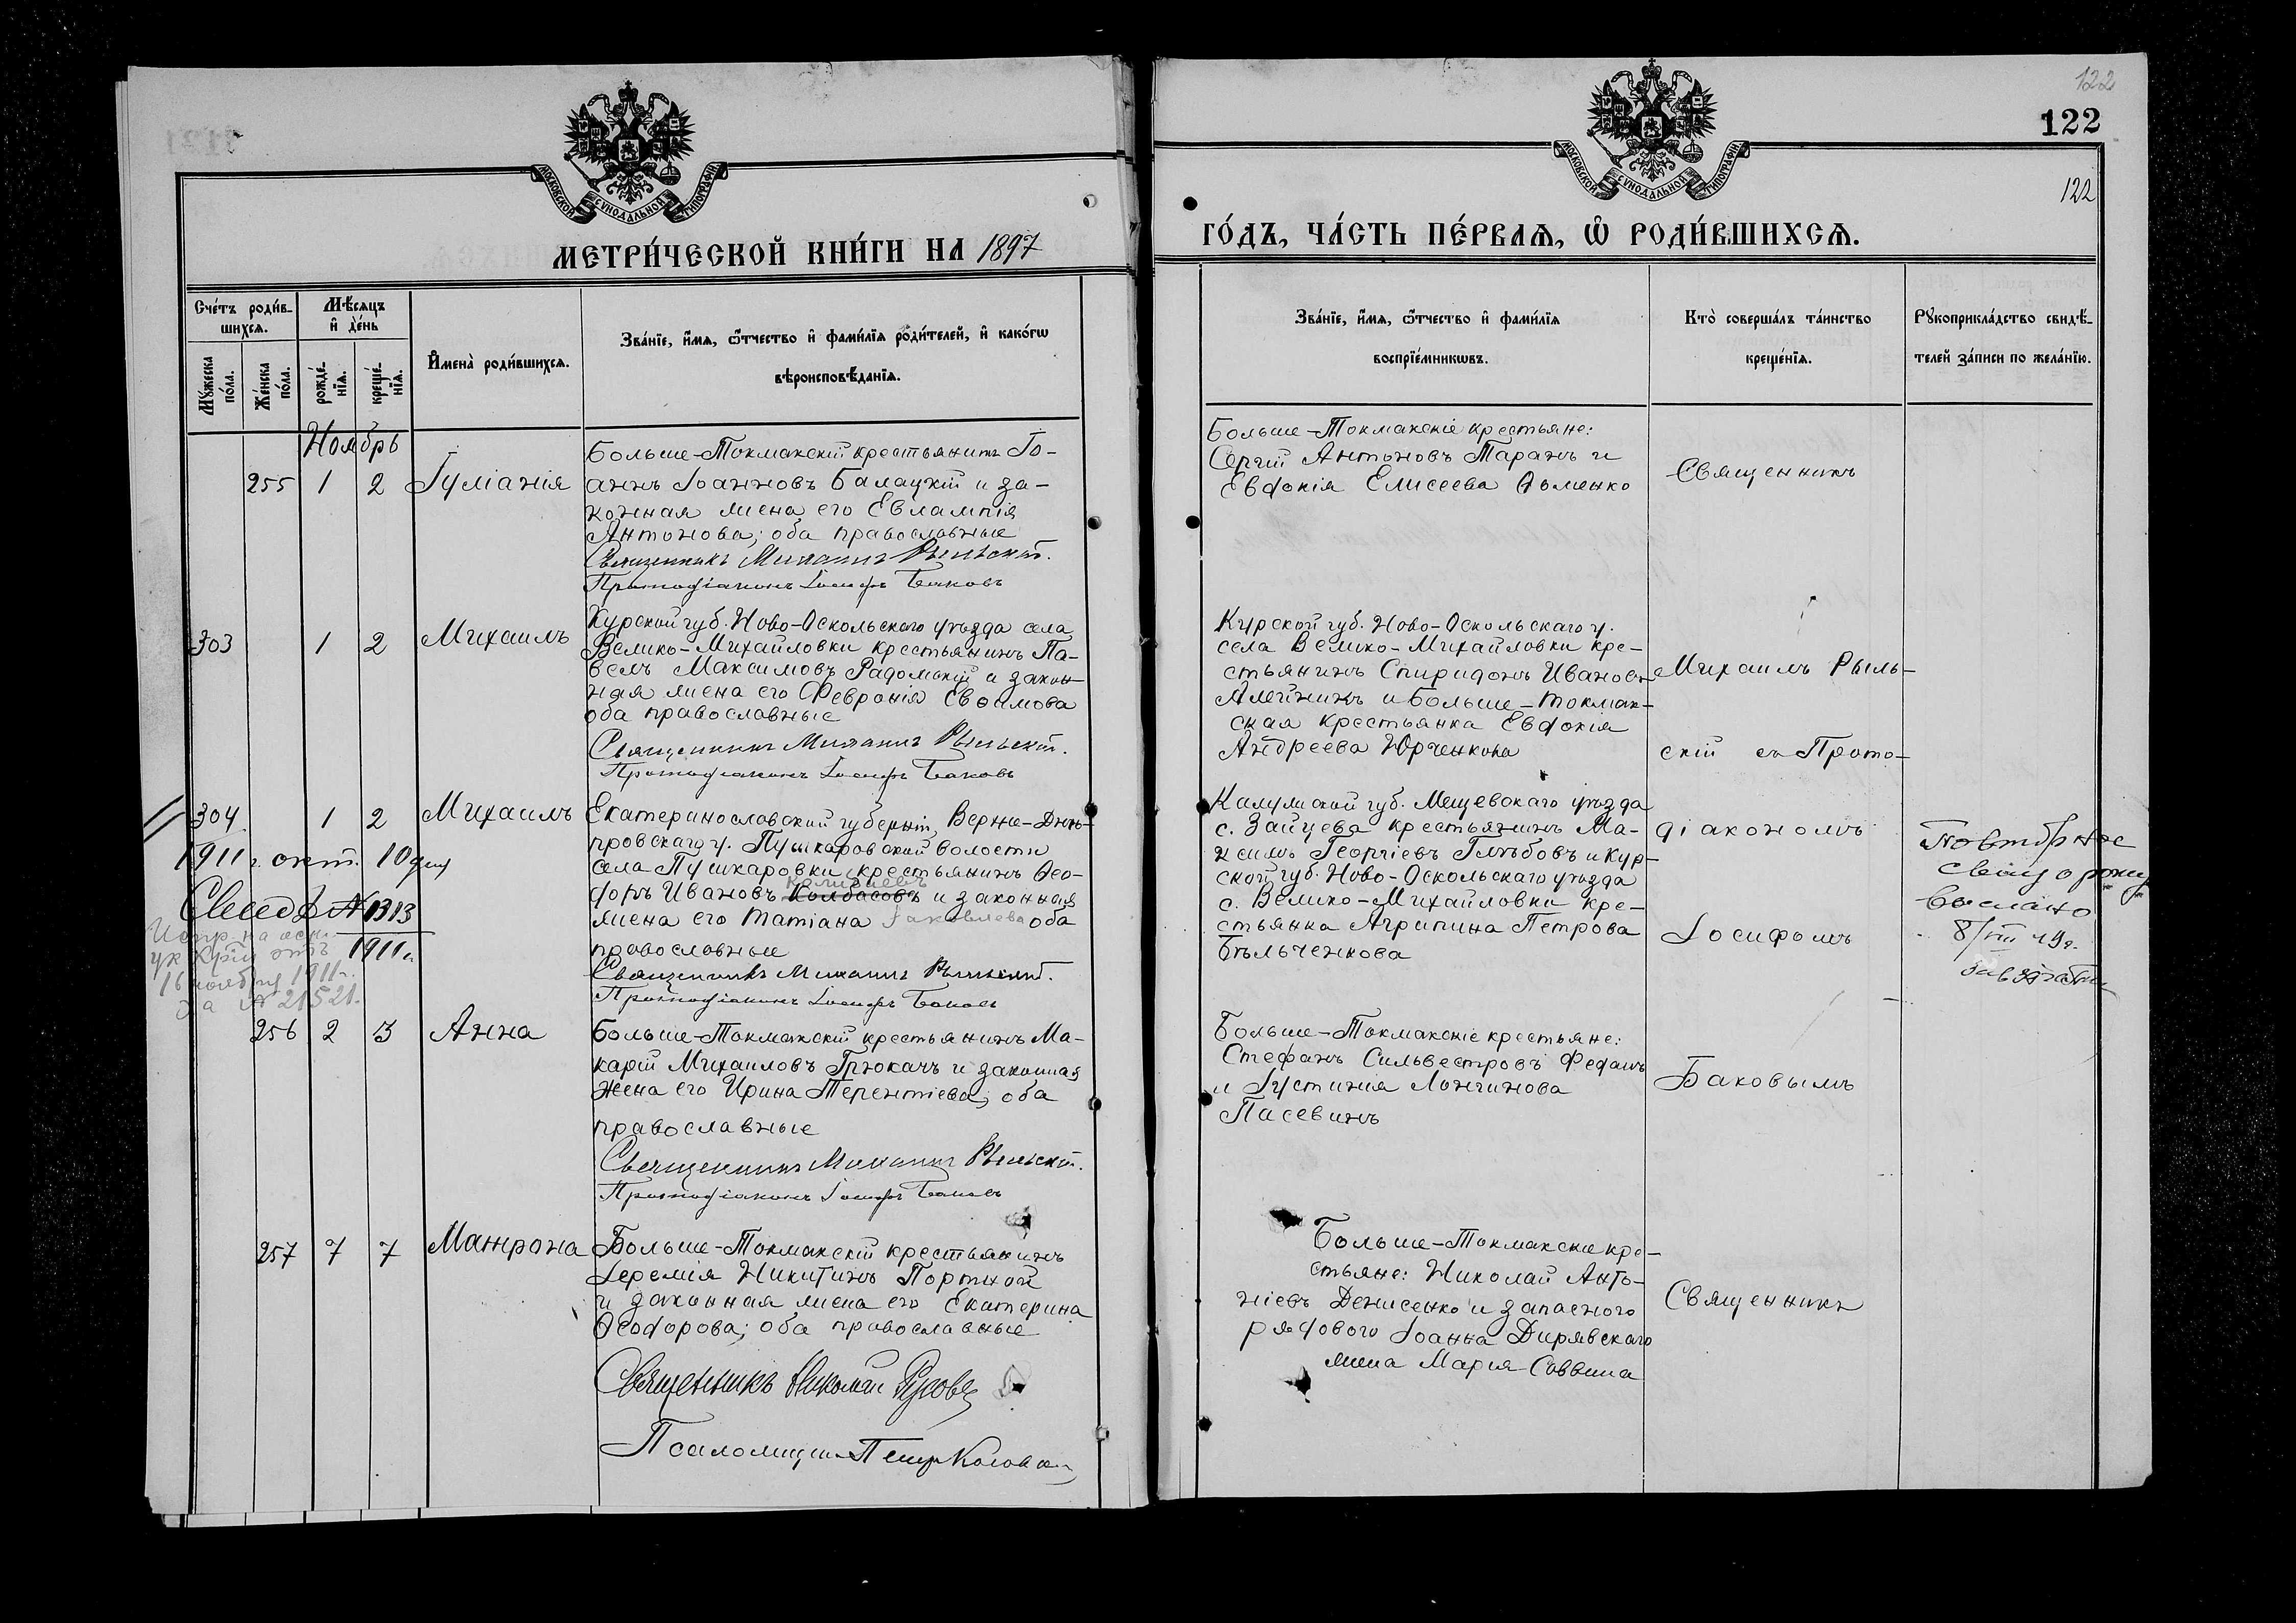 МОСКОВСКОЙ СУНОДАЛЬНОЙ ТИПОГРАФІИ
МЕТРИ́ЧЕСКОЙ КНИ́ГИ НА 1897
Сче́тъ роди́в-
шихсѧ.
Мѣ́сѧцъ
и҆ де́нь
Мꙋ́жеска
по́ла.
Же́нска
по́ла.
рожде́-
нїѧ.
креще́-
нїѧ.
И҆мена̀ роди́вшихсѧ.
Зва́нїе, и҆́мѧ, ѻ҆́тчество и҆ фами́лїѧ роди́телей, и҆ како́гѡ
вѣроисповѣ́данїѧ.
Ноябрь
255 1 2 Іуліанія
Больше-Токмакскій крестьянинъ Іо-
аннъ Іоанновъ Балацкій и за-
конная жена его Евлампія
Антонова; оба православные
Священникъ Михаилъ Рыльскій.
Протодіаконъ Іосифъ Баковъ
303 1 2 Михаилъ
Курской губ. Ново-Оскольскаго уѣзда села
Велико-Михайловки крестьянинъ Па-
велъ Максимовъ Радомскій и закон-
ная жена его Февронія Евѳимова
оба православные
Священникъ Михаилъ Рыльскій.
Протодіаконъ Іосифъ Баковъ
304 1 2 Михаилъ
Екатеринославской губерніи, Верхне-Днѣ-
провскаго у. Пушкаровской волости
села Пушкаровки крестьянинъ Ѳео-
доръ Ивановъ Колбасовъ и законная
жена его Татіана Іаковлева оба
православные
Священникъ Михаилъ Рыльскій.
Протодіаконъ Іосифъ Баковъ
1911 г. окт. 10 дня
№ 1313
1911 г.
16 ноября 1911 г.
за № 21521.
256 2 3 Анна
Больше-Токмакскій крестьянинъ Ма-
карій Михаиловъ Грюкачъ и законная
жена его Ирина Терентіева; оба
православные
Священникъ Михаилъ Рыльскій.
Протодіаконъ Іосифъ Баковъ
257 7 7 Матрона
Больше-Токмакскій крестьянинъ
Іеремія Никитинъ Портной
и законная жена его Екатерина
Ѳеодорова; оба православные
Священникъ Николай
Псаломщикъ Петръ
122
122
122
МОСКОВСКОЙ СУНОДАЛЬНОЙ ТИПОГРАФІИ
ГО́ДЪ, ЧА́СТЬ ПЕ́РВАѦ, Ѽ РОДИ́ВШИХСѦ.
Зва́нїе, и҆́мѧ, ѻ҆́тчество и҆ фами́лїѧ
воспрїе́мникѡвъ.
Кто̀ соверша́лъ та́инство
креще́нїѧ.
Рꙋкоприкла́дство свидѣ́-
телей за́писи по жела́нїю.
Больше-Токмакскіе крестьяне:
Сергій Антоновъ Таранъ и
Евдокія Елисеева
Священникъ
Курской губ. Ново-Оскольскаго у.
села Велико-Михайловки кре-
стьянинъ Спиридонъ Ивановъ
Алейникъ и Больше-Токмак-
ская крестьянка Евдокія
Андреева Юрченкова
Михаилъ Рыль-
скій съ Прото-
Калужской губ. Мещевскаго уѣзда
с. Зайцева крестьянинъ Ма-
ксимъ Георгіевъ Глѣбовъ и Кур-
ской губ. Ново-Оскольскаго уѣзда
с. Велико-Михайловки кре-
стьянка Агрипина Петрова
Бѣльченкова
діакономъ
Іосифомъ
Повторное
выслано
8/VIII 19 г.
Больше-Токмакскіе крестьяне:
Стефанъ Сильвестровъ Федашъ
и Іустинія Лонгинова
Пасевинъ
Баковымъ
Больше-Токмакскіе кре-
стьяне: Николай Анто-
ніевъ Денисенко и запасного
рядового Іоанна Дирявскаго
жена Марія Саввина
Священникъ